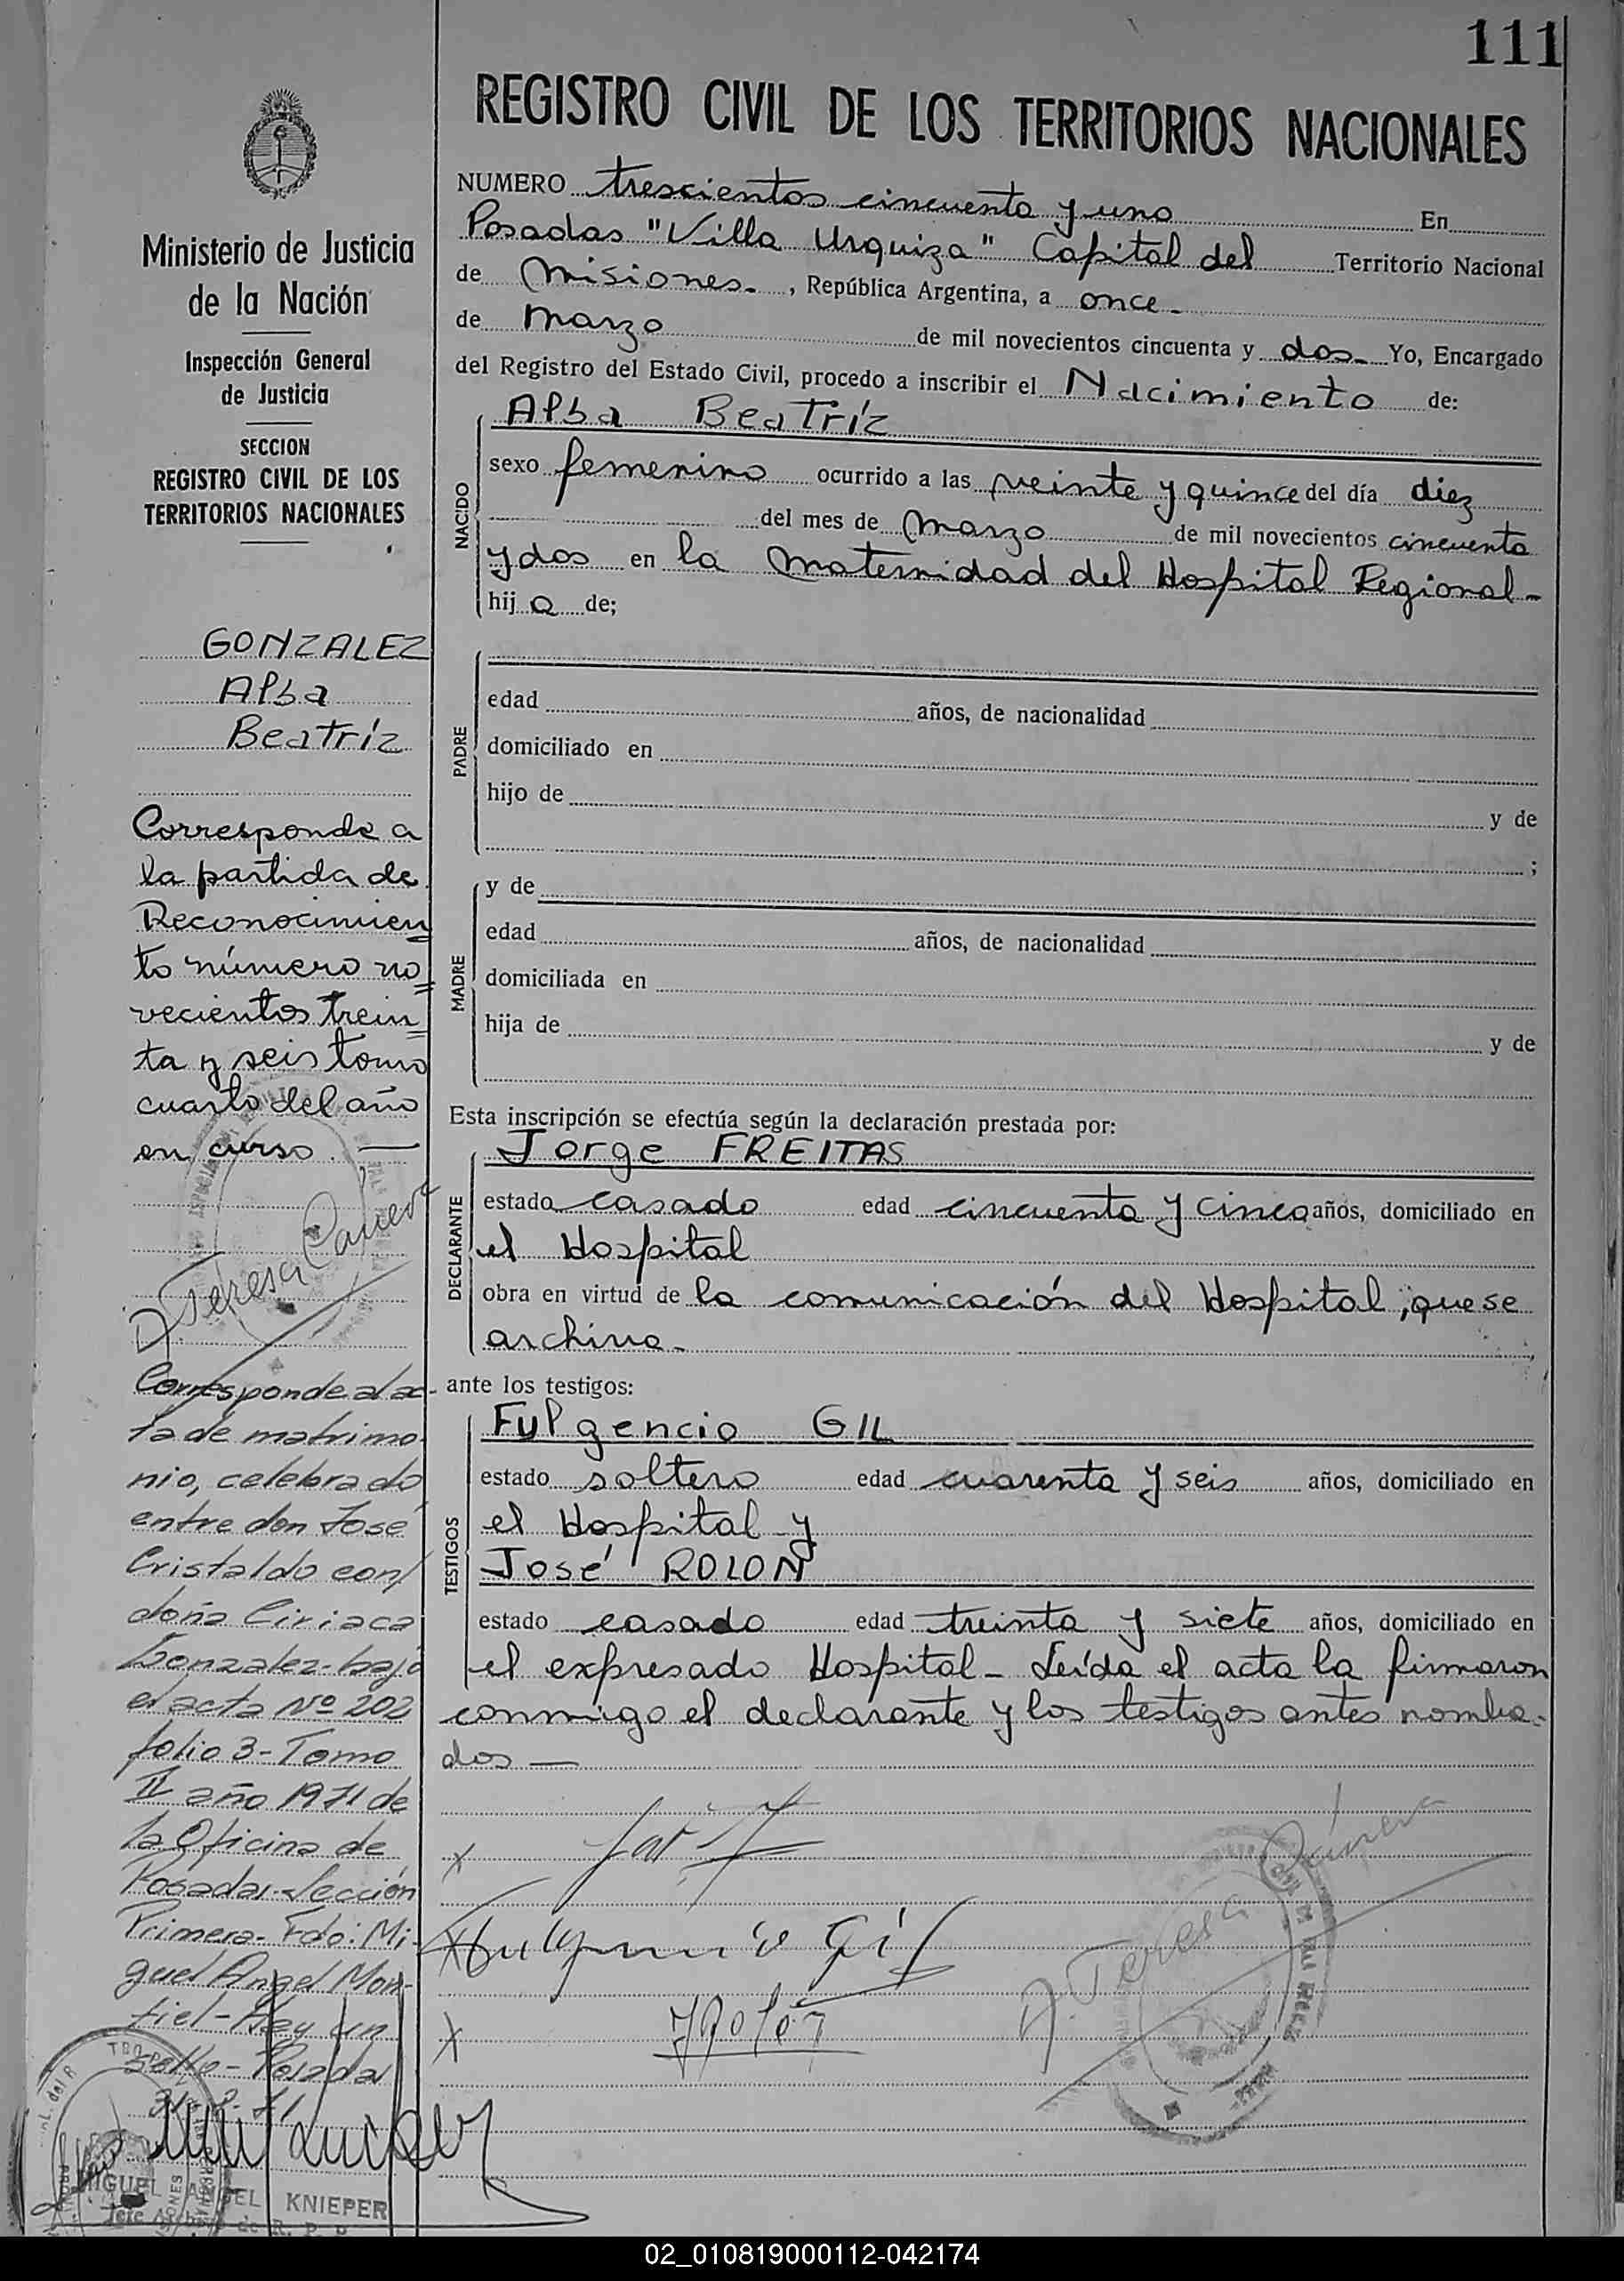 111
REGISTRO CIVIL DE LOS TERRITORIOS NACIONALES
Ministerio de Justicia
de la Nación
Inspección General
de Justicia
SECCION
REGISTRO CIVIL DE LOS
TERRITORIOS NACIONALES
GONZALEZ
Alba
Beatríz
Corresponde a
la partida de
Reconocimien
to número no
vecientos trein
ta y seis tomo
cuarto del año
en curso. —
Corresponde al ac-
ta de matrimo-
nio, celebrado
entre don José
Cristaldo con
doña Ciriaca
Gonzalez- bajo
el acta Nº 202
folio 3- Tomo
II año 1971 de
la Oficina de
Posadas- Sección
Primera- Fdo: Mi-
guel Angel Mon-
tiel- Hay un
sello- Posadas
MIGUEL ANGEL KNIEPER
NUMERO trescientos cincuenta y uno En
Posadas "Villa Urquiza" Capital del Territorio Nacional
de Misiones. , República Argentina, a once-
de Marzo de mil novecientos cincuenta y dos- Yo, Encargado
del Registro del Estado Civil, procedo a inscribir el Nacimiento de:
NACIDO
Alba Beatríz
sexo femenino ocurrido a las veinte y quince del día diez
del mes de Marzo de mil novecientos cincuenta
y dos en la Maternidad del Hospital Regional-
hij a de;
PADRE
edad años, de nacionalidad
domiciliado en
hijo de y de
;
MADRE
y de
edad años, de nacionalidad
domiciliada en
hija de y de
Esta inscripción se efectúa según la declaración prestada por:
DECLARANTE
Jorge FREITAS
estado casado edad cincuenta y cinco años, domiciliado en
el Hospital
obra en virtud de la comunicación del Hospital, que se
archiva-
ante los testigos:
TESTIGOS
Fulgencio GIL
estado soltero edad cuarenta y seis años, domiciliado en
el Hospital y
José ROLON
estado casado edad treinta y siete años, domiciliado en
el expresado Hospital- Leída el acta la firmaron
conmigo el declarante y los testigos antes nombra-
dos —
x
x Fulgencio Gil
x JRolón
02_010819000112-042174